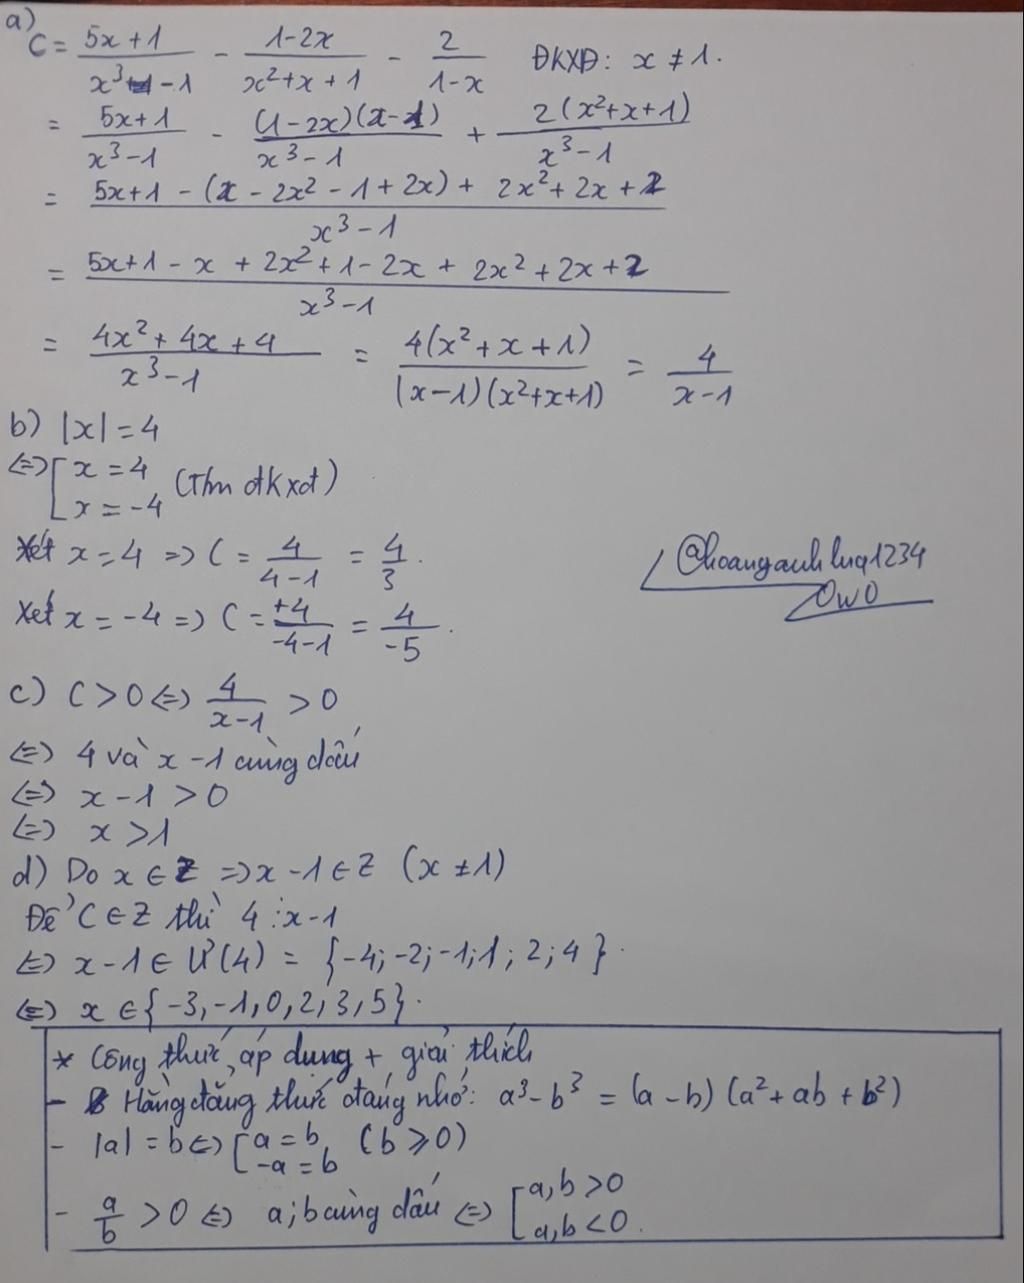 a)
C = \frac{5x+1}{x^3-1} - \frac{1-2x}{x^2+x+1} - \frac{2}{1-x} ĐKXĐ: x ≠ 1.
= \frac{5x+1}{x^3-1} - \frac{(1-2x)(x-1)}{x^3-1} + \frac{2(x^2+x+1)}{x^3-1}
= \frac{5x+1-(x-2x^2-1+2x)+2x^2+2x+2}{x^3-1}
= \frac{5x+1-x+2x^2+1-2x+2x^2+2x+2}{x^3-1}
= \frac{4x^2+4x+4}{x^3-1} = \frac{4(x^2+x+1)}{(x-1)(x^2+x+1)} = \frac{4}{x-1}
b) |x| = 4
⇔ [ x = 4
x = -4 (Tm đkxđ)
Xét x = 4 => C = \frac{4}{4-1} = \frac{4}{3}.
Xét x = -4 => C = \frac{+4}{-4-1} = \frac{4}{-5}.
@hoanganhluq1234
OwO
c) C > 0 ⇔ \frac{4}{x-1} > 0
⇔ 4 và x - 1 cùng dấu
⇔ x - 1 > 0
⇔ x > 1
d) Do x ∈ Z => x - 1 ∈ Z (x ≠ 1)
Để C ∈ Z thì 4 ⋮ x - 1
⇔ x - 1 ∈ Ư(4) = {-4; -2; -1; 1; 2; 4}.
⇔ x ∈ {-3, -1, 0, 2, 3, 5}.
* Công thức áp dụng + giải thích
- Hằng đẳng thức đáng nhớ: a^3 - b^3 = (a - b)(a^2 + ab + b^2)
- |a| = b ⇔ [ a = b (b ⩾ 0)
-a = b
- \frac{a}{b} > 0 ⇔ a; b cùng dấu ⇔ [ a, b > 0
a, b < 0.